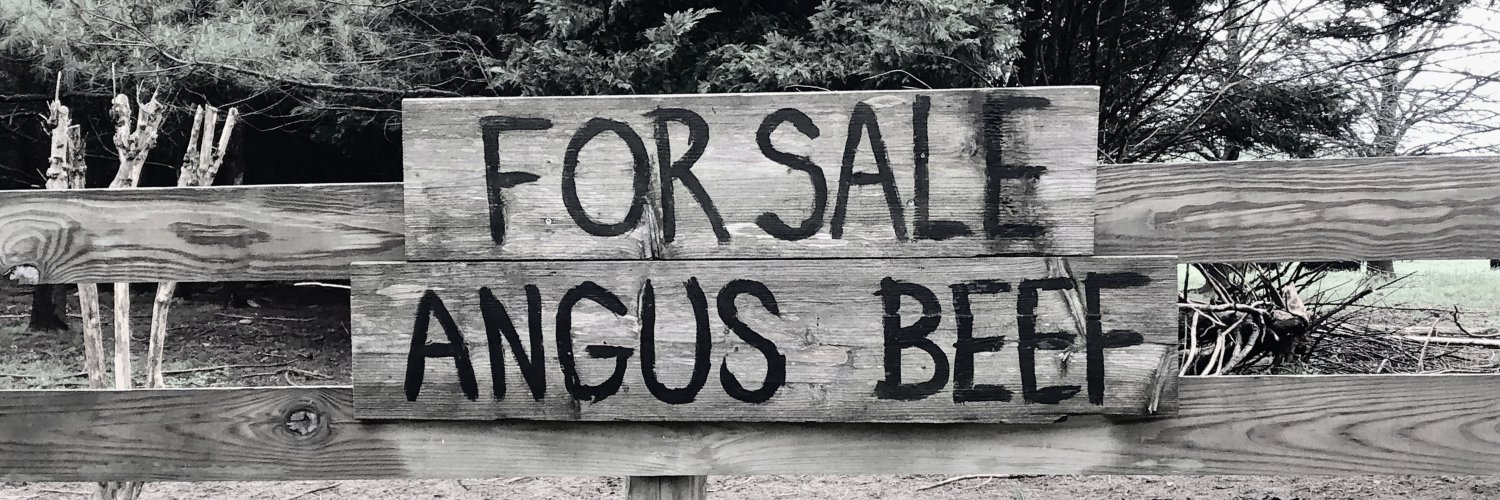 FOR SALE
ANGUS BEEF